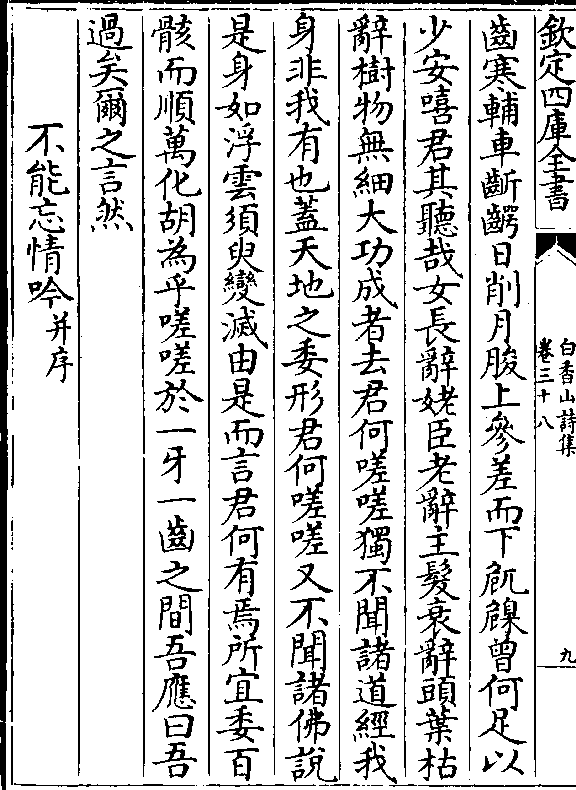 欽定四庫全書
白香山詩集
卷三十八
九
齒寒輔車齗齶日削月朘上參差而下卼臲曾何足以
少安嘻君其聽哉女長辭姥臣老辭主髮衰辭頭葉枯
辭樹物無細大功成者去君何嗟嗟獨不聞諸道經我
身非我有也蓋天地之委形君何嗟嗟又不聞諸佛說
是身如浮雲須臾變滅由是而言君何有焉所宜委百
骸而順萬化胡為乎嗟嗟於一牙一齒之間吾應曰吾
過矣爾之言然
不能忘情吟并序